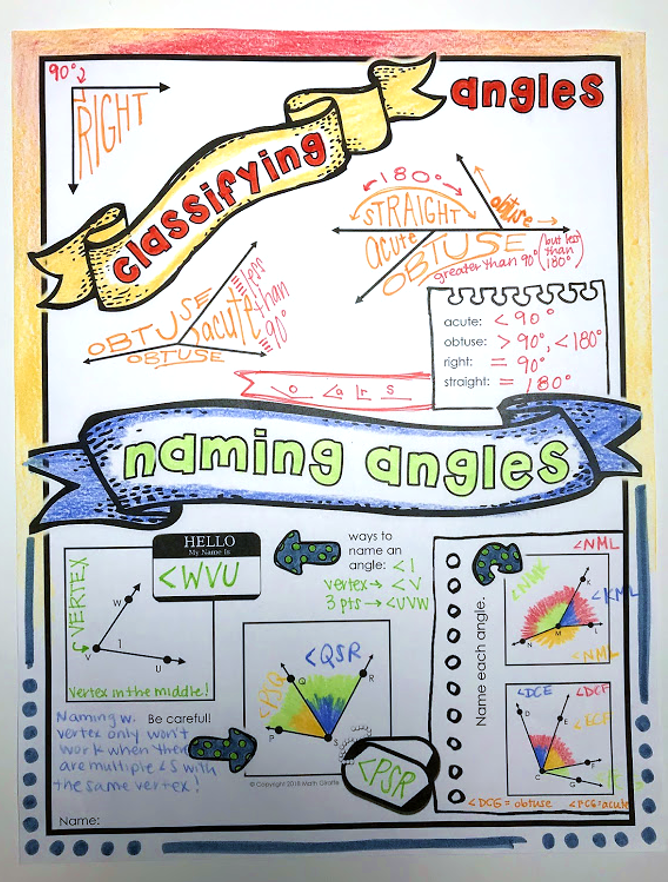 90°
RIGHT
classifying
angles
180°
STRAIGHT
obtuse
acute
OBTUSE
greater than 90° (but less than 180°)
OBTUSE
acute
less
than
90°
OBTUSE
acute: < 90°
obtuse: > 90°, < 180°
right: = 90°
straight: = 180°
naming angles
HELLO
My Name Is
<WVU
ways to
name an
angle: <1
vertex → <V
3 pts → <UVW
VERTEX
W
V
1
U
Vertex in the middle!
Naming w.
vertex only won't
work when there
are multiple <s with
the same vertex!
Be careful!
<QSR
<PSQ
Q
R
P
S
<PSR
© Copyright 2018 Math Giraffe
Name each angle.
<NML
<NMK
K
<KML
N
M
L
<NML
<DCE
<DCF
D
E
<ECF
F
C
G
<DCG = obtuse
<FCG = acute
Name: